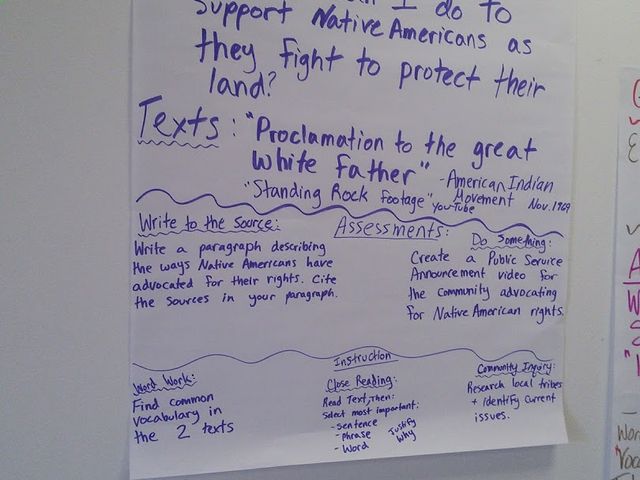 I do to
Support Native Americans as
they fight to protect their
land?
Texts: "Proclamation to the great
White Father"
-American Indian
Movement Nov. 1969
"Standing Rock Footage" YouTube
Assessments:
Write to the Source:
Write a paragraph describing
the ways Native Americans have
advocated for their rights. Cite
the sources in your paragraph.
Do Something:
Create a Public Service
Announcement video for
the community advocating
for Native American rights.
Instruction
Word Work:
Find common
vocabulary in
the 2 texts
Close Reading:
Read Text, Then:
Select most important:
-sentence
-Phrase
-Word
Justify
Why
Community Inquiry:
Research local tribes
+ identify current
issues.